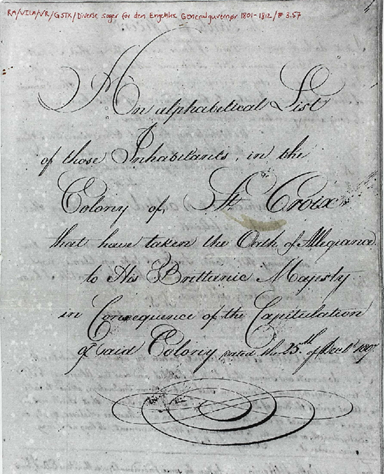 RA/VILA/VR/GSTK/Diverse sager for den Engelske Generalguvernør 1801-1812/# 3.57
An alphabetical List
of those Inhabitants, in the
Colony of St Croix
that have taken the Oath of Allegiance
to His Brittanic Majesty
in Consequence of the Capitulation
of said Colony dated the 25th of Decbr 1807